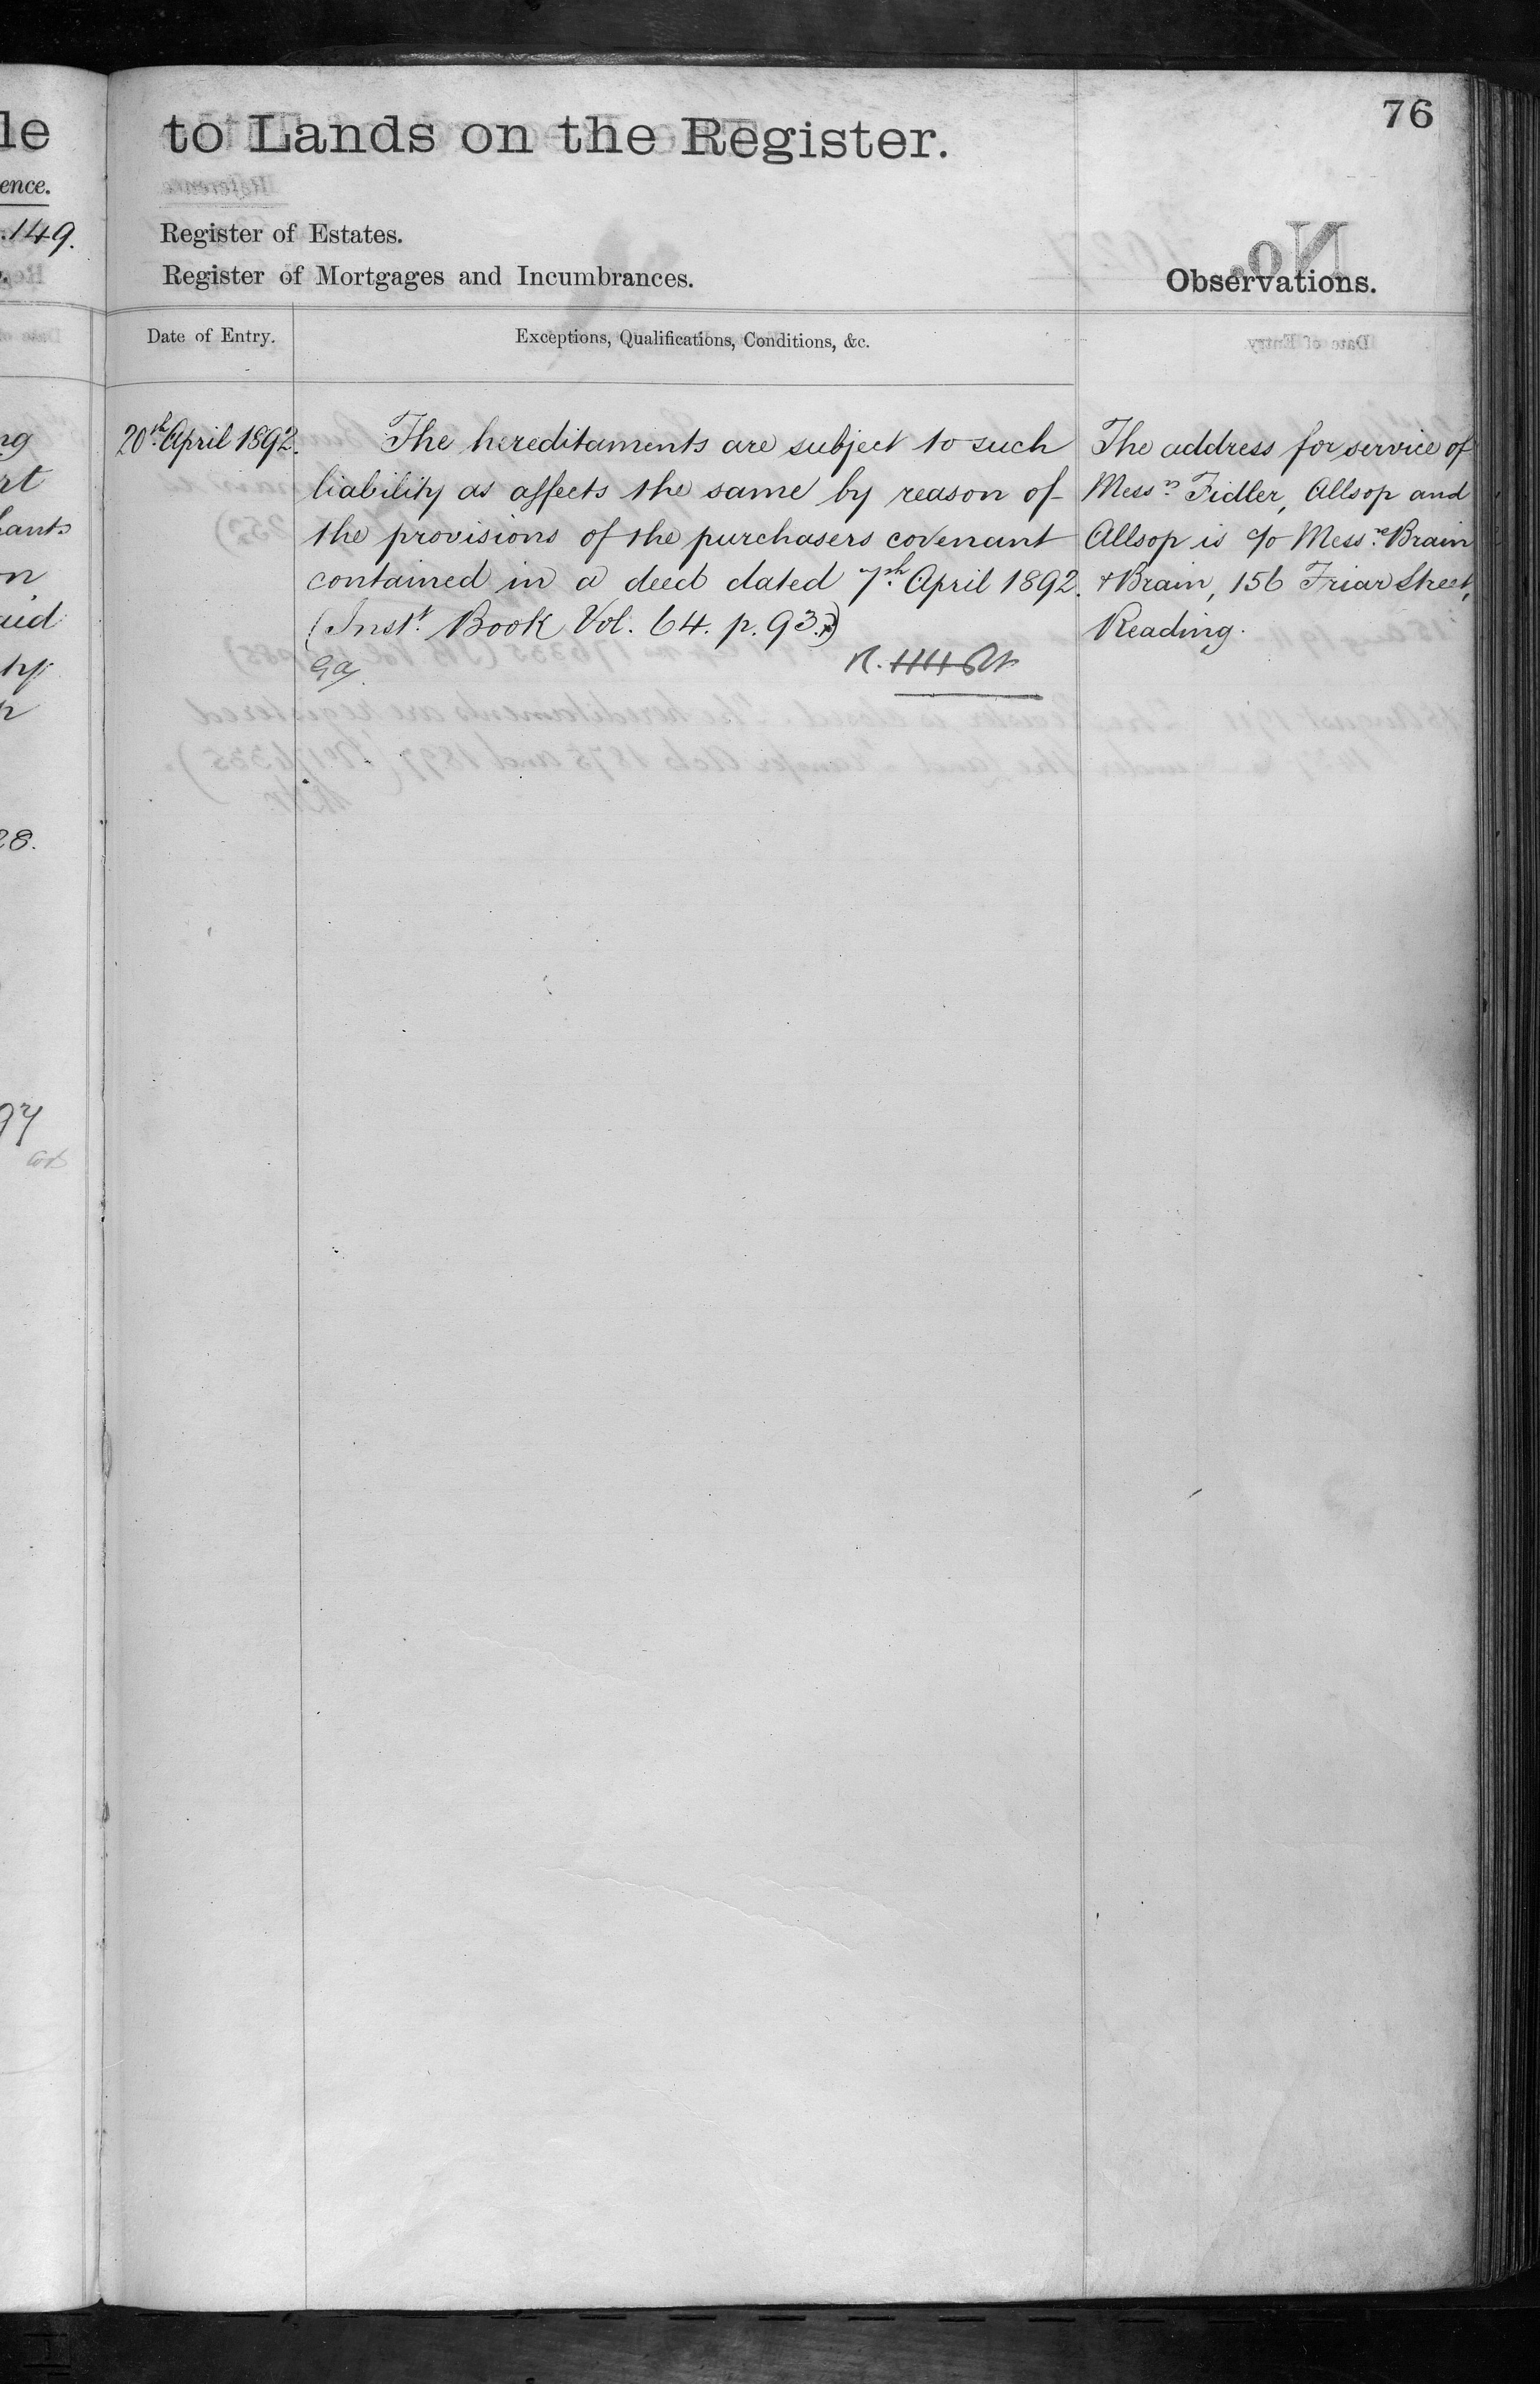 le
ence.
.149.
ng
rt
hants
on
aid
28.
97
76
to Lands on the Register.
Register of Estates.
Register of Mortgages and Incumbrances.
Observations.
Date of Entry.
Exceptions, Qualifications, Conditions, &c.
20th April 1892.
The hereditaments are subject to such
liability as affects the same by reason of
the provisions of the purchasers covenant
contained in a deed dated 7th April 1892.
(Inst. Book Vol. 64. p. 93.)
The address for service of
Messrs Fidler, Allsop and
Allsop is c/o Messrs Brain
& Brain, 156 Friar Street,
Reading.